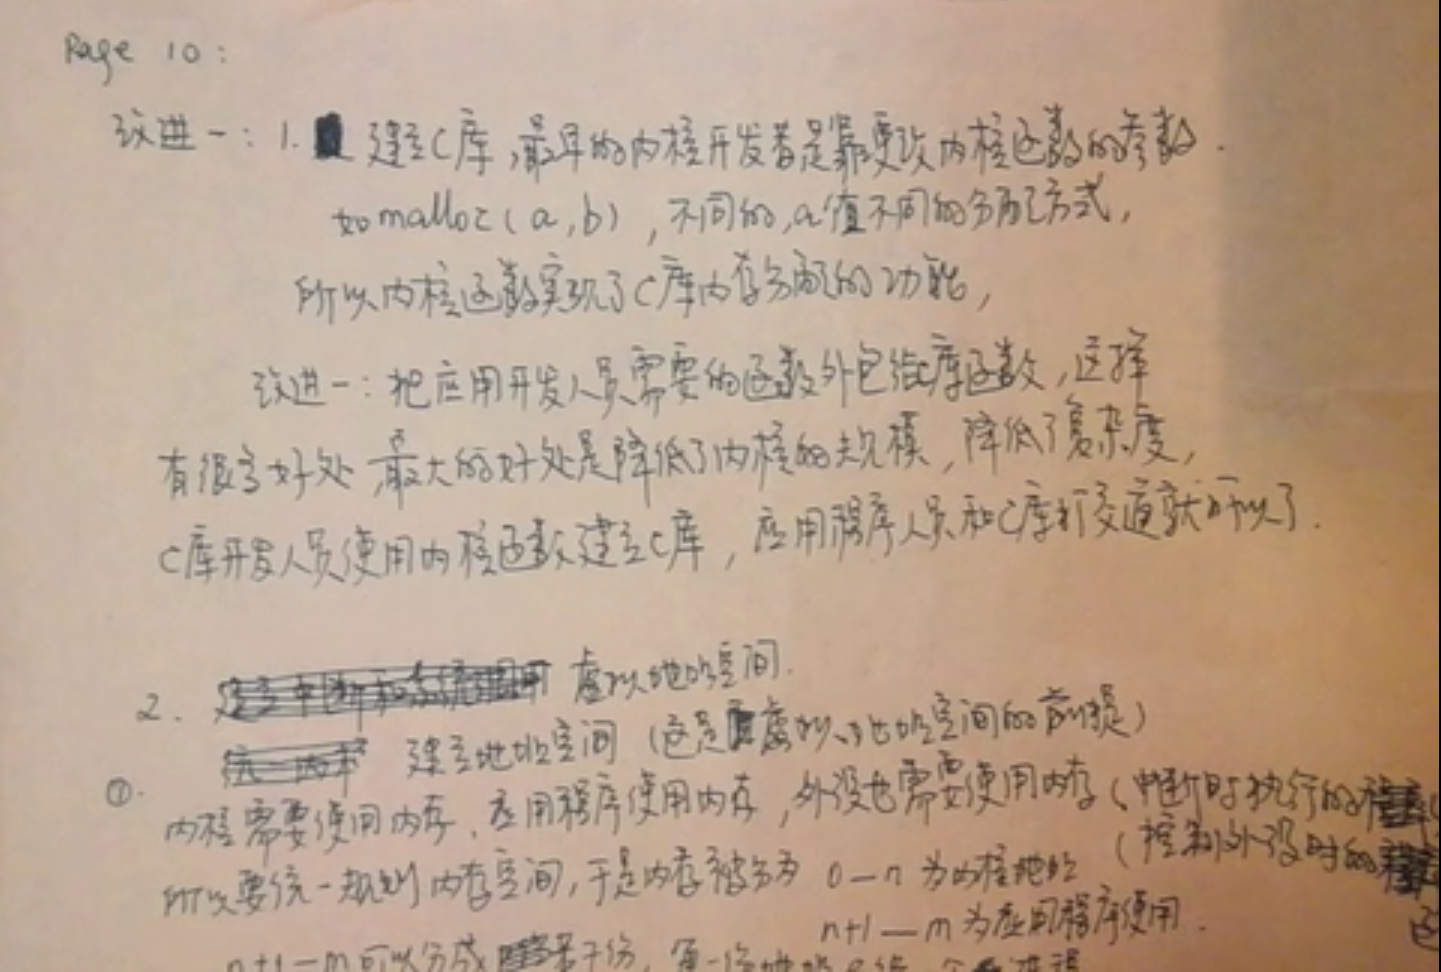 Page 10:
改进一: 1. 建立C库,最早的内核开发者是靠更改内核函数的参数.
如malloc(a,b),不同的,a值不同的分配方式,
所以内核函数实现了C库内存分配的功能,
改进一:把应用开发人员需要的函数外包给C库函数,这样
有很多好处,最大的好处是降低了内核的规模,降低了复杂度,
C库开发人员使用内核函数建立C库,应用程序人员和C库打交道就可以了.
2. 虚拟地址空间.
建立地址空间(这是虚拟地址空间的前提)
①.
内核需要使用内存、应用程序使用内存,外设也需要使用内存(中断时执行的
(控制外设时的
所以要统一规划内存空间,于是内存被分为 0—n 为内核地址
n+1—m为应用程序使用.
n+1—m可以分成 若干份,